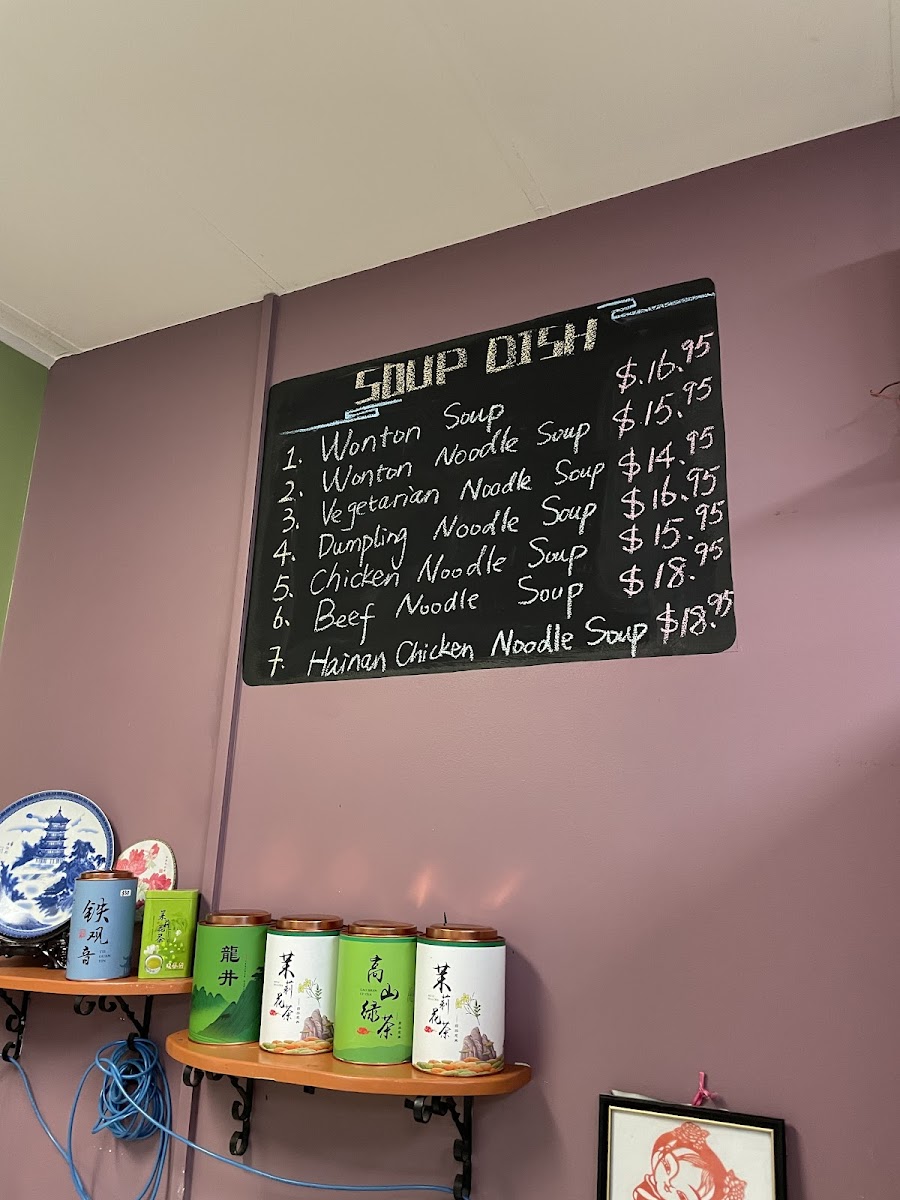 SOUP DISH
1. Wonton Soup $.16.95
2. Wonton Noodle Soup $15.95
3. Vegetarian Noodle Soup $14.95
4. Dumpling Noodle Soup $16.95
5. Chicken Noodle Soup $15.95
6. Beef Noodle Soup $18.95
7. Hainan Chicken Noodle Soup $18.95
铁观音
龍井
茉莉花茶
高山绿茶
茉莉花茶